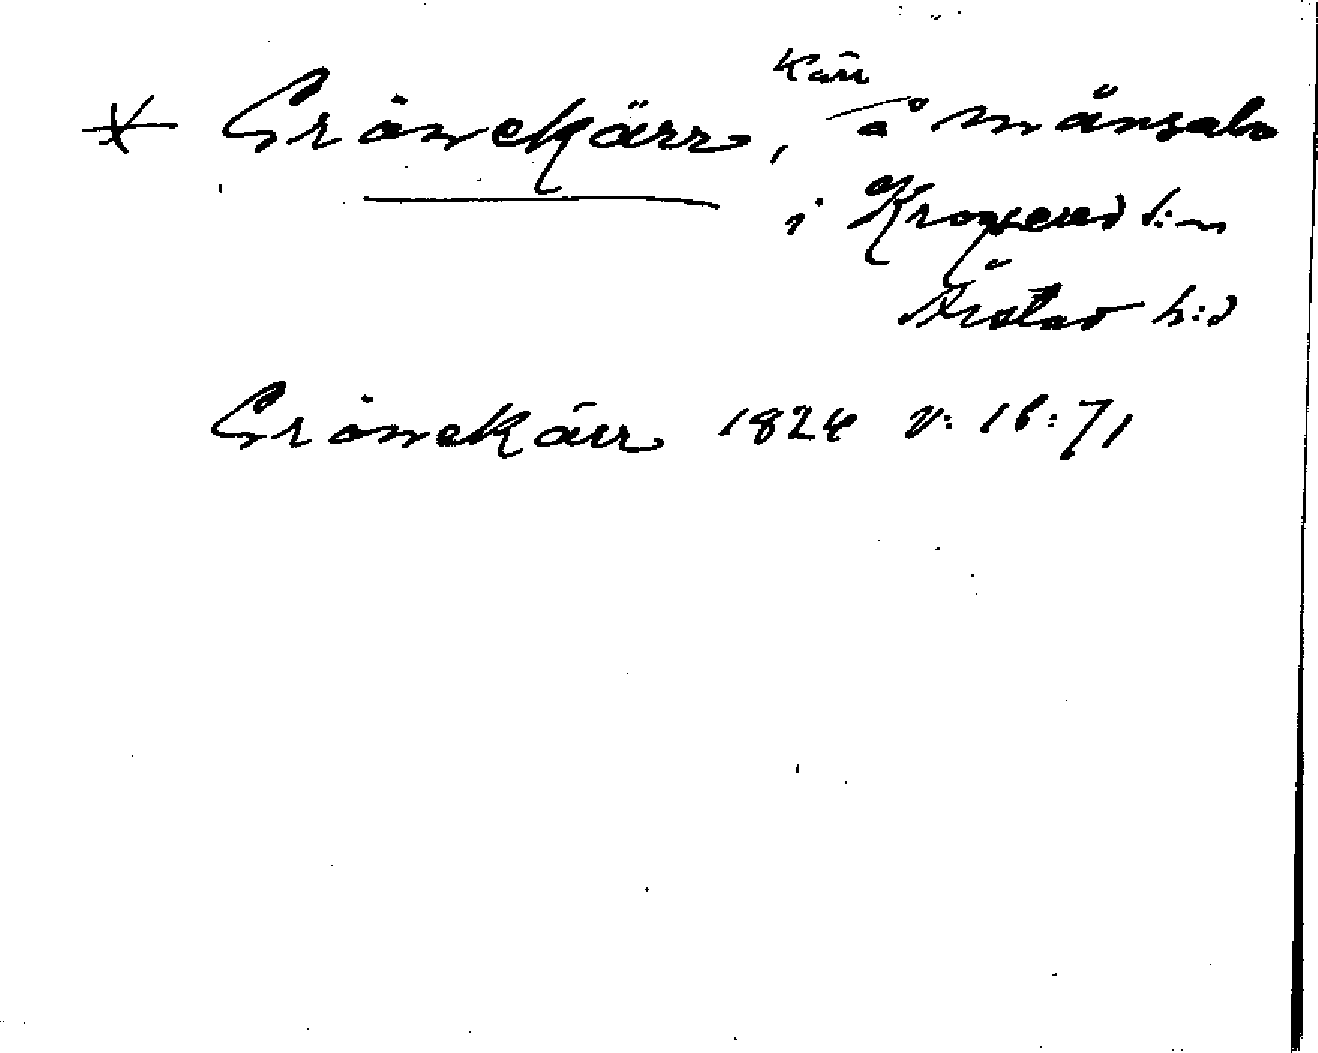 * Grönekärr, kärr å Månsabo
i Kroppered s:n
Årstad h:d
Grönekärr 1824 v: 16:71